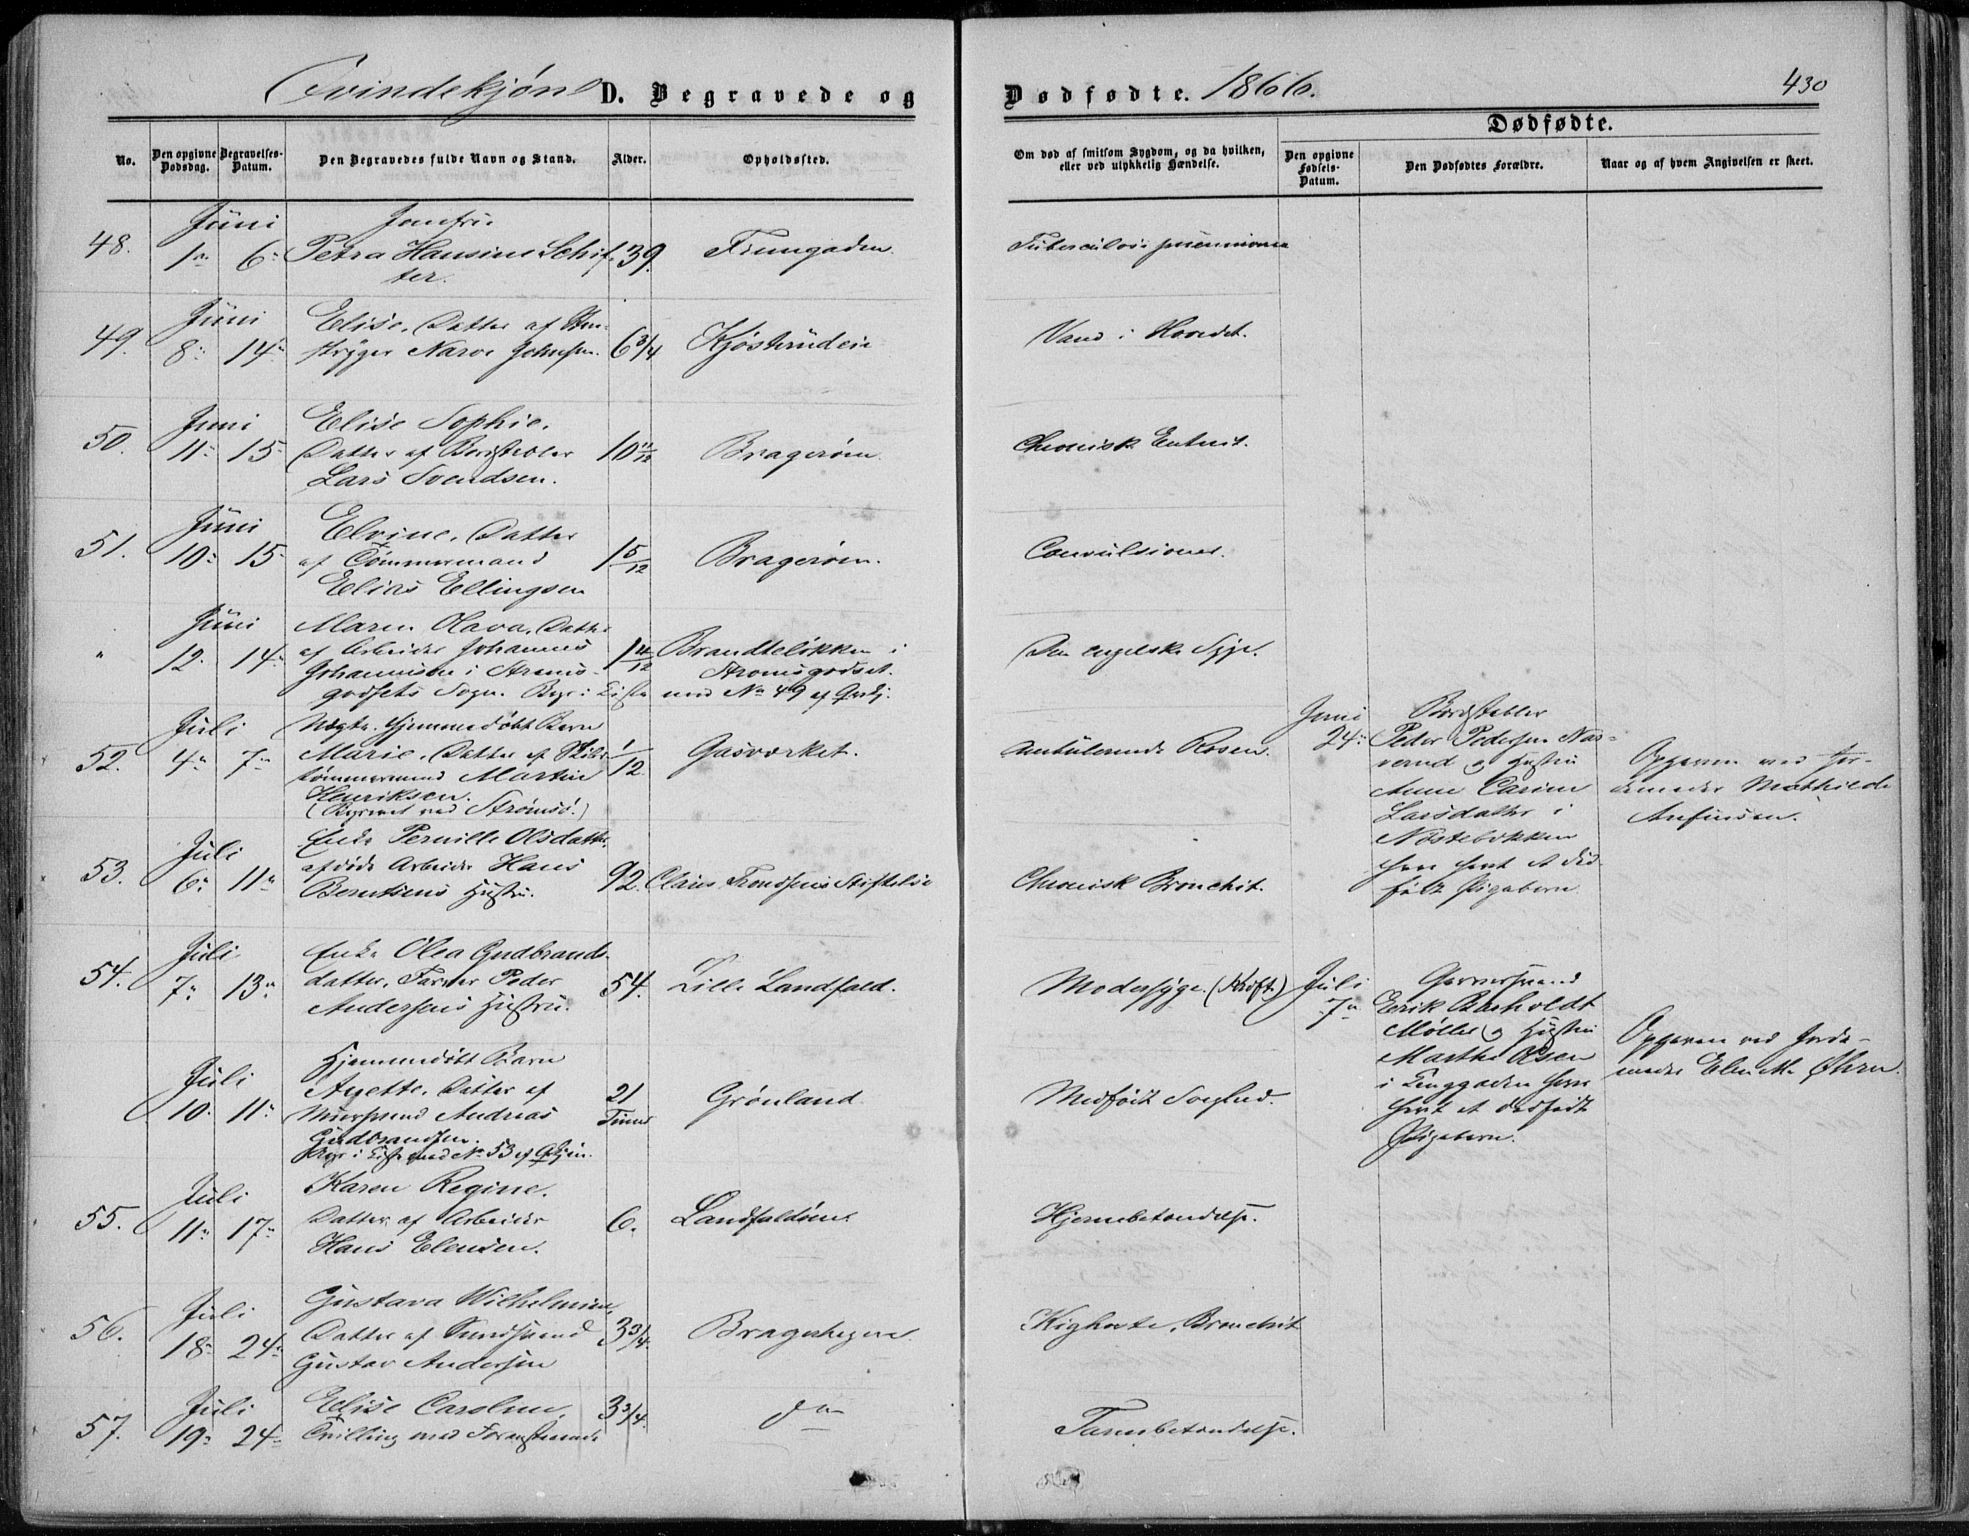 Qvindekjøn D. Begravede og Dødfødte. 1866. 430
No.
Den opgivne Dødsdag.
Begravelses-Datum.
Den Begravedes fulde Navn og Stand.
Alder.
Opholdssted.
Om død af smitsom Sygdom, og da hvilken,
eller ved ulykkelig Hændelse.
Dødfødte.
Den opgivne Fødsels-Datum.
Den Dødfødtes Forældre.
Naar og af hvem Angivelsen er skeet.
Juni Jomfru
48. 1. 6. Petra Hansine Schif- 39. Tuberculos pneumonie
ter.
Juni Elise, Datter af
49. 8. 14. stryger Narve Johnsen. 6 3/4 Kjøsterudeie Vand i Hovedet.
Juni Elise Sophie,
50. 11. 15. Datter af Bordstabler 10 11/12 Bragerøen. Chronisk Enterit.
Lars Svendsen.
Juni Elvine, Datter
51. 10. 15. af Tømmermand 1 5/12 Bragerøen. Convulsioner.
Elias Ellingsen
Juni Maren Olava, Datter
" 12. 14. af Arbeider Johannes Brandteløkken i Den engelske Syge.
Johannesen i Strøms- Strømsgodset.
godsets Sogn. Begr. i Kiste med No 49 af Qvkj.
Juli Uægte hjemmedøbt Barn
52. 4. 7. Marie, Datter af Skibs- 1/12 Gasværket. ambulerende Rosen.
tømmermand Martin
Henriksen.
(Begravet ved Strømsø.)
Juni 24. Bordstabler
Peder Pedersen Nas-
verud og Hustru
Anne Carine
Larsdatter i
Nøstebækken
have havt et død-
født Pigebarn.
Opgaven ved Jor-
demoder Mathilde
Anfinsen.
Enke Pernille Olsdatter,
Juli afdøde Arbeider Hans
53. 6. 11. Berntsens Hustru. 92. Claus Trondsens Stiftelse Chronisk Bronchit.
Juli Enke Olea Gudbrands-
54. 7. 13. datter, Farver Peder 54. Lille Landfald. Modersyge. (Kræft.)
Andersens Hustru.
Juli 7. Garversvend
Erik Basholdt
Møller og Hustru
Marthe Olsen
i Tinggaden have
havt et dødfødt
Pigebarn.
Opgaven ved Jorde-
moder Øhrn.
Hjemmedøbt Barn
Juli Agette, Datter af
10. 11. Muursvend Andreas 21 Timer Grønland Medfødt Svaghed.
Gudbrandsen.
Begr. i Kiste med No 53 af Qvkjøn.
Juli Karen Regine,
55. 11. 17. Datter af Arbeider 6. Landfaldøen. Hjernebetændelse.
Hans Elensen.
Juli Gustava Wilhelmine,
56. 18. 24. Datter af 3 3/4. Bragerhagen Kighoste, Bronchit
Gustav Andersen
Juli Elise Caroline,
57. 19. 24. Tvilling med Foranstaaende 3 3/4. do Tarmbetændelse.